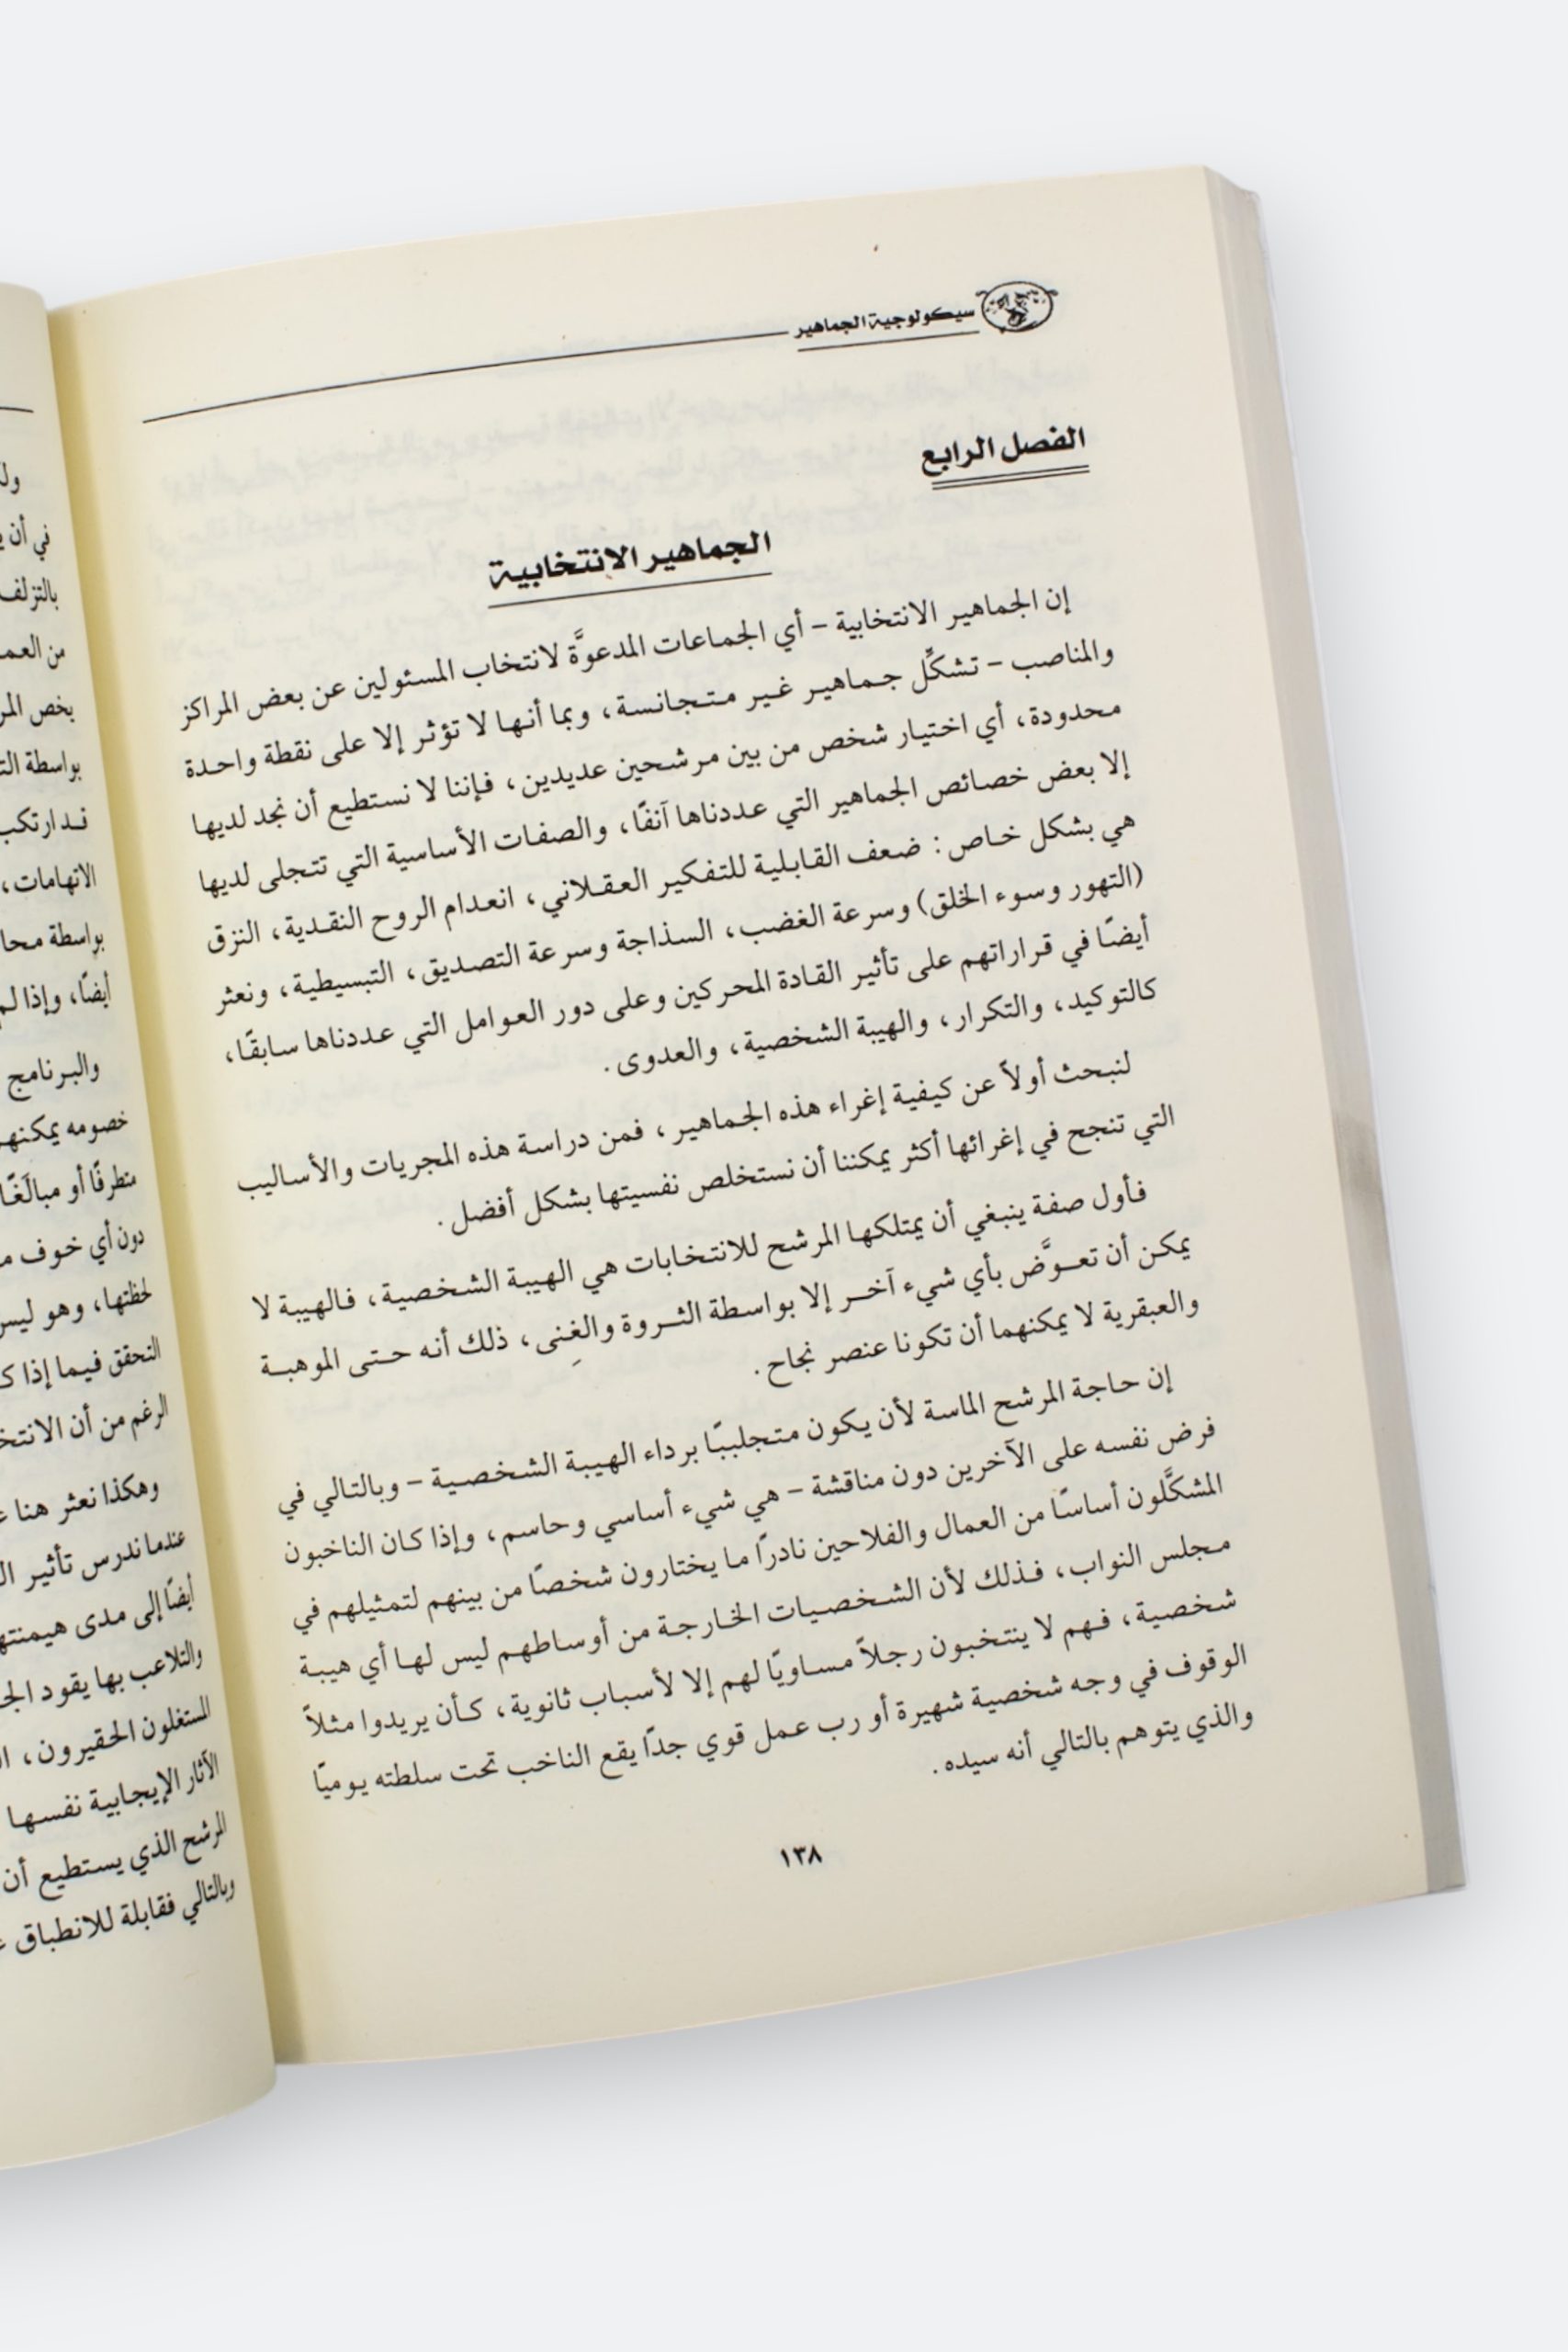 سيكولوجية الجماهير
الفصل الرابع
الجماهير الانتخابية
إن الجماهير الانتخابية - أي الجماعات المدعوَّة لانتخاب المسئولين عن بعض المراكز
والمناصب - تشكِّل جماهير غير متجانسة، وبما أنها لا تؤثر إلا على نقطة واحدة
محدودة، أي اختيار شخص من بين مرشحين عديدين، فإننا لا نستطيع أن نجد لديها
إلا بعض خصائص الجماهير التي عددناها آنفًا، والصفات الأساسية التي تتجلى لديها
هي بشكل خاص: ضعف القابلية للتفكير العقلاني، انعدام الروح النقدية، النزق
(التهور وسوء الخلق) وسرعة الغضب، السذاجة وسرعة التصديق، التبسيطية، ونعثر
أيضًا في قراراتهم على تأثير القادة المحركين وعلى دور العوامل التي عددناها سابقًا،
كالتوكيد، والتكرار، والهيبة الشخصية، والعدوى.
لنبحث أولاً عن كيفية إغراء هذه الجماهير، فمن دراسة هذه المجريات والأساليب
التي تنجح في إغرائها أكثر يمكننا أن نستخلص نفسيتها بشكل أفضل.
فأول صفة ينبغي أن يمتلكها المرشح للانتخابات هي الهيبة الشخصية، فالهيبة لا
يمكن أن تعوَّض بأي شيء آخر إلا بواسطة الثروة والغِنى، ذلك أنه حتى الموهبة
والعبقرية لا يمكنهما أن تكونا عنصر نجاح.
إن حاجة المرشح الماسة لأن يكون متجلببًا برداء الهيبة الشخصية - وبالتالي في
فرض نفسه على الآخرين دون مناقشة - هي شيء أساسي وحاسم، وإذا كان الناخبون
المشكَّلون أساسًا من العمال والفلاحين نادرًا ما يختارون شخصًا من بينهم لتمثيلهم في
مجلس النواب، فذلك لأن الشخصيات الخارجة من أوساطهم ليس لها أي هيبة
شخصية، فهم لا ينتخبون رجلاً مساويًا لهم إلا لأسباب ثانوية، كأن يريدوا مثلاً
الوقوف في وجه شخصية شهيرة أو رب عمل قوي جدًا يقع الناخب تحت سلطته يوميًا
والذي يتوهم بالتالي أنه سيده.
١٣٨
في أن
بالتزلف
من
بخص
بواسطة
الاتهامات،
بواسطة
أيضًا، وإذا لم
والبرنامج
خصومه
متطرفًا أو
دون أي خوف
لحظتها، وهو
التحقق فيما إذا
الرغم من أن
وهكذا نعثر هنا
عندما ندرس تأثير
أيضًا إلى مدى
والتلاعب بها يقود
المستغلون الحقيرون،
الآثار الإيجابية نفسها
المرشح الذي يستطيع أن
وبالتالي فقابلة للانطباق